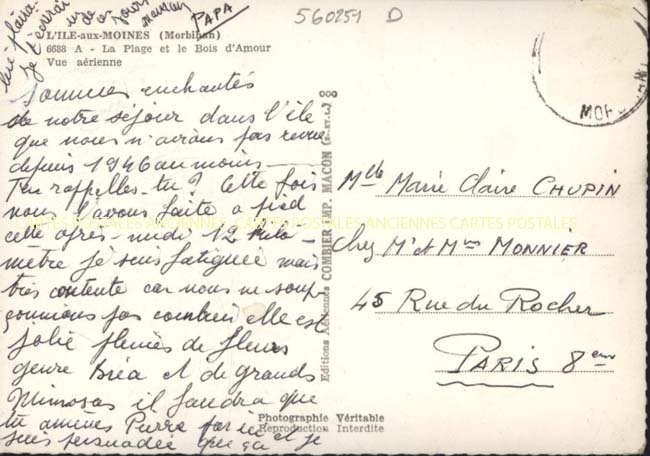 560251 D
je t'écrirai
PAPA
L'ILE-aux-MOINES (Morbihan)
6688 A - La Plage et le Bois d'Amour
Vue aérienne
Sommes enchantés
de notre séjour dans l'île
que nous n'avions pas revue
depuis 1946 au moins
T'en rappelles-tu? Cette fois
nous l'avons faite à pied
cette après-midi 12 kilo-
mètre je suis fatiguée mais
très contente car nous ne soup-
çonnions pas combien elle est
jolie fleuries de fleurs
genre Bréa et de grands
Mimosas il faudra que
tu amènes Pierre par ici et je
suis persuadée que ça
Editions Aériennes COMBIER IMP. MACON (S.-ET-L.)
CARTES POSTALES ANCIENNES CARTES POSTALES ANCIENNES CARTES POSTALES
MOR
Mlle Marie Claire CHUPIN
Chez Mr et Mme MONNIER
45 Rue du Rocher
PARIS 8eme
Photographie Véritable
Reproduction Interdite